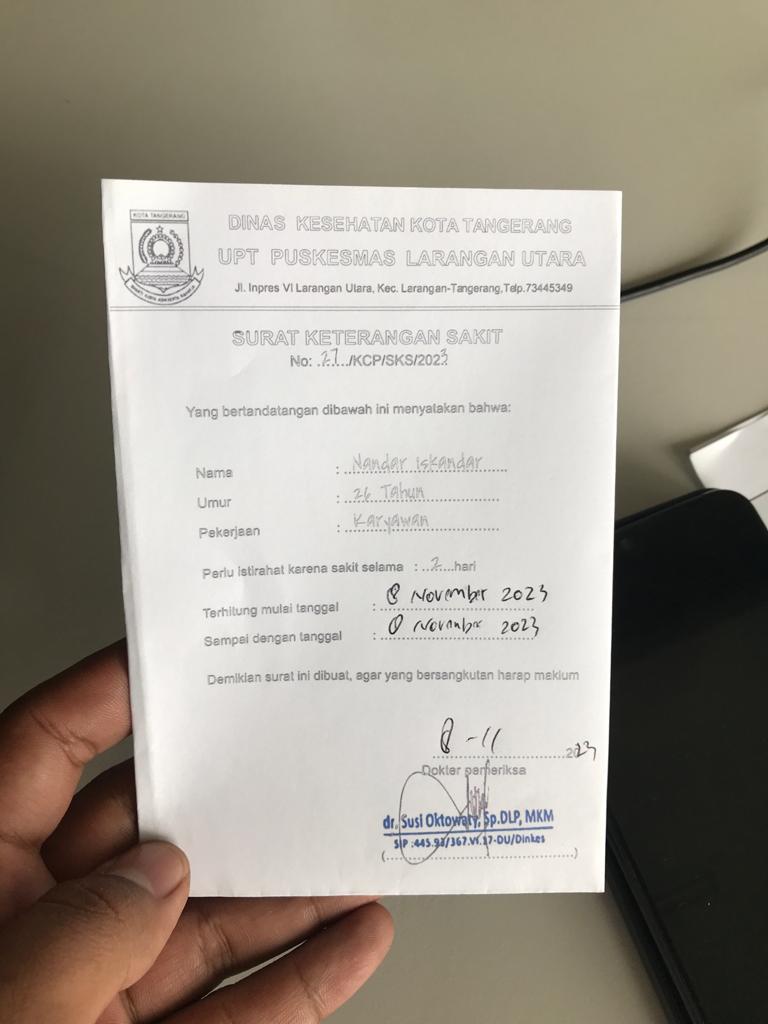 KOTA TANGERANG
DINAS KESEHATAN KOTA TANGERANG
UPT PUSKESMAS LARANGAN UTARA
Jl. Inpres VI Larangan Utara, Kec. Larangan-Tangerang,Telp.73445349
SURAT KETERANGAN SAKIT
No: .27../KCP/SKS/2023
Yang bertandatangan dibawah ini menyatakan bahwa:
Nama : Nandar iskandar
Umur : 26 Tahun
Pekerjaan : Karyawan
Perlu istirahat karena sakit selama : ..2...hari
Terhitung mulai tanggal : 8 November 2023
Sampai dengan tanggal : November 2023
Demikian surat ini dibuat, agar yang bersangkutan harap maklum
8 -11 2023
Dokter pemeriksa
dr. Susi Oktowaty, Sp.DLP, MKM
SIP :445.93/367.VI.17-DU/Dinkes
(..............................)